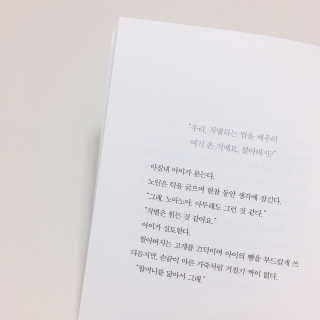 "우리, 작별하는 법을 배우러
여기 온 거예요, 할아버지?"
마침내 아이가 묻는다.
노인은 턱을 긁으며 한참 동안 생각에 잠긴다.
"그래, 노아노아. 아무래도 그런 것 같다."
"작별은 힘든 것 같아요."
아이가 실토한다.
할아버지는 고개를 끄덕이며 아이의 뺨을 부드럽게 쓰
다듬지만, 손끝이 마른 가죽처럼 거칠기 짝이 없다.
"할머니를 닮아서 그래."